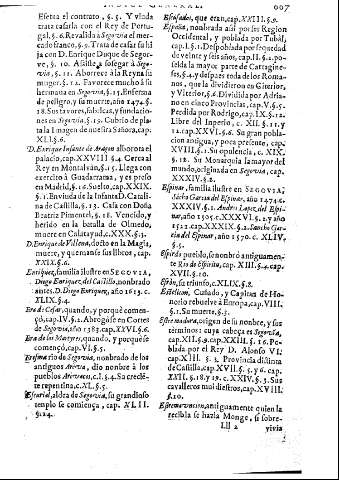 INDICE GENERAL.
997
Efetua el contrato, §. 5. Y viuda
trata casarla con el Rey de Portu-
gal, §. 6. Revalida a Segovia el mer-
cado franco, §. 9. Trata de casar su hi
ja con D. Enrique Duque de Segor-
ve, §. 10. Asiste a sosegar à Sego-
via, §. 11. Aborrece à la Reyna su
muger, §. 12. Favorece mucho à su
hermana en Segovia, §. 15. Enferma
de peligro, y su muerte, año 1474. §.
18. Sustatores, fabricas, y fundacio-
nes en Segovia, §. 19. Cubrio de pla-
ta la Imagen de nuestra Señora, cap.
XLI. §. 6.
D. Enrique Infante de Aragon alborota el
palacio, cap. XXVIII §. 4. Cerca al
Rey en Montalvàn, §. 15. Llega con
exercito à Guadarrama, y es preso
en Madrid, §. 16. Suelto, cap. XXIX.
§. 1. Enviuda de la Infanta D. Catali-
na de Castilla, §. 13. Casa con Doña
Beatriz Pimentel, §. 18. Vencido, y
herido en la batalla de Olmedo,
muere en Calatayud. c. XXX. §. 3.
D. Enrique de Villena, docto en la Magia,
muere, y queman los sus libros, cap.
XXIX. §. 6.
Enriquez, familia ilustre en SEGOVIA,
Diego Enriquez del Castillo, nombrado
antes. D. Diego Enriquez, año 1613. c.
XLIX. §. 4.
Era de Cesar, quando, y porquè comen-
çò, cap. IV. §. 1. Abrogòse en Cortes
de Segovia, año 1383. cap. XXVI. §. 6.
Era de los Martyres, quando, y porquè se
començò, cap. VI. §. 5.
Eresma rio de Segovia, nombrado de los
antiguos Areva, dio nombre à los
pueblos Arevacos, c. I. §. 4. Su crecie-
te repentina, c. XL. §. 5.
Escurial, aldea de Segovia, su grandioso
templo se comiença, cap. XLII.
§. 24.
Escusados, que eran, cap. XXIII. §. 9.
España, nombrada asi por ser Region
Occidental, y poblada por Tubàl,
cap. I. §. 1. Despoblada por sequedad
de veinte y seis años, cap. II. §. 1. po-
seida la mayor parte de Cartagine-
ses, §. 4. y despues toda de los Roma-
nos, que la dividieron en Citerior,
y Vlterior, §. 6. Dividida por Adria-
no en cinco Provincias, cap. V. §. 5.
Perdida por Rodrigo, cap. IX. §. 12.
Libre del Imperio, c. XII. §. 11. y
12. cap. XXVI. §. 6. Su gran pobla-
cion antigua, y poca presente, cap.
XVIII. §. 1. Su opulencia, c. XIX.
§. 12. Su Monarquia la mayor del
mundo, originada en Segovia, cap.
XXXIV. §. 2.
Espinar, familia ilustre en SEGOVIA,
Pedro Garcia del Espinar, año 1474. c.
XXXIV. §. 1. Andres Lopez del Espi-
nar, año 1505. c. XXXVI. §. 2. y año
1512. cap. XXXIX. §. 2. Sancho Garcia
del Espinar, año 1570. c. XLIV.
§. 5.
Espirdo pueblo, se nombrò antiguamen-
te Rio de Espiritu, cap. XIII. §. 4. cap.
XVII. §. 10.
Estàn, su triunfo, c. XLIX. §. 8.
Estelicon, Cuñado, y Capitan de Ho-
norio rebuelve à Europa, cap. VIII.
§. 1. Su muerte, §. 3.
Estremadura, origen de su nombre, y sus
terminos: cuya cabeça es Segovia,
cap. XII. §. 9. cap. XXIII. §. 16. Po-
blada por el Rey D. Alonso VI.
cap. XIII. §. 3. Provincia distinta
de Castilla, cap. XVII. §. 5. y 6. cap.
XXII. §. 18. y 19. c. XXIV. §. 3. Sus
cavalleros mui diestros, cap. XVIII:
§. 10.
Estremauncion, antiguamente quien la
recibia se hazia Monge, si sobre-
Lll 2
vivia